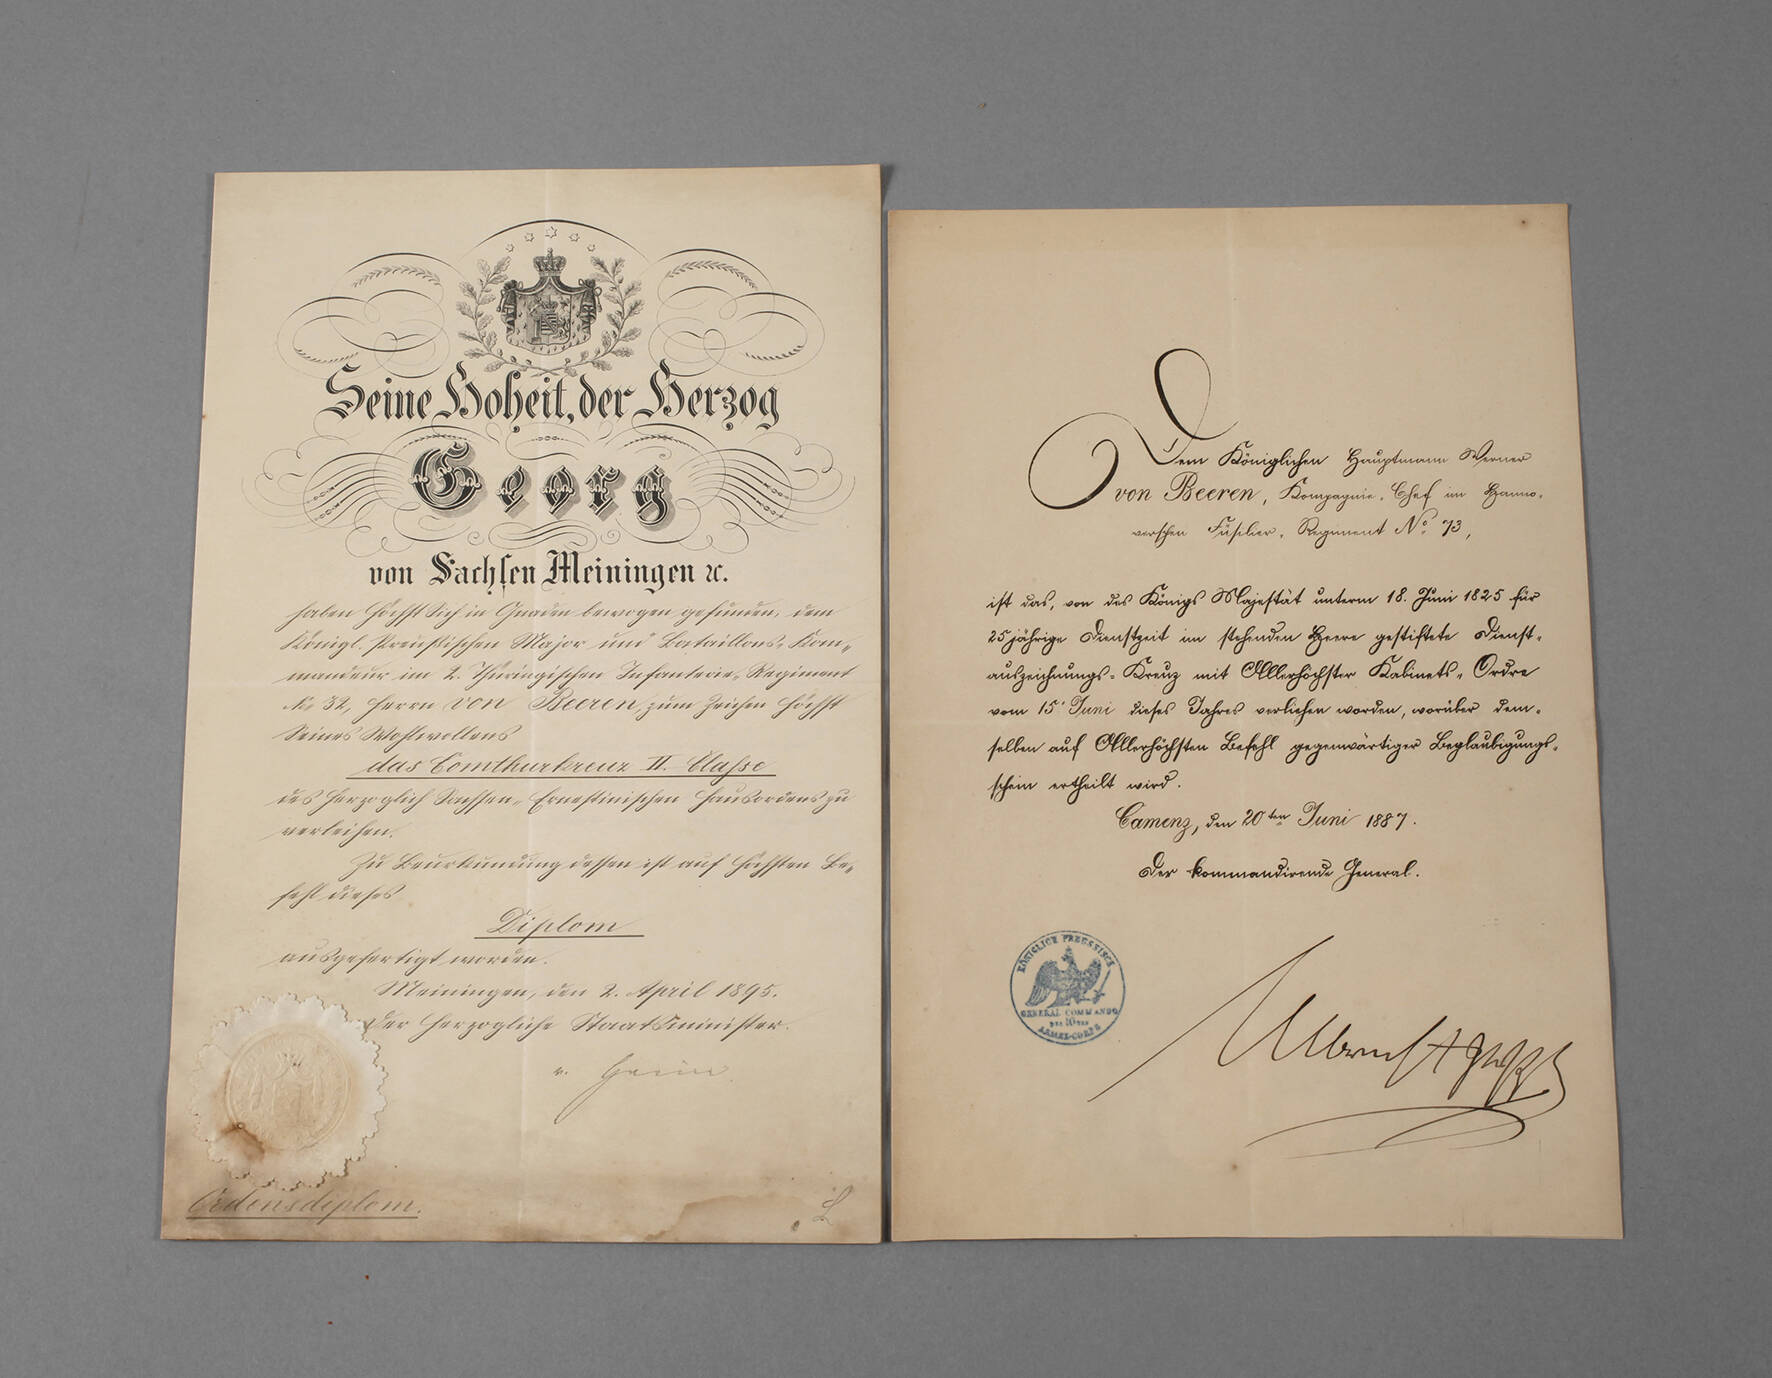 Seine Hoheit, der Herzog
Georg
von Sachsen Meiningen ꝛc.
haben Höchst Sich in Gnaden bewogen gefunden, dem
Königl. Preußischen Major und Bataillons-Kom-
mandeur im 2. Thüringischen Infanterie-Regiment
No 32, Herrn von Beeren, zum Zeichen Höchst
Seines Wohlwollens
das Comthurkreuz II. Classe
des Herzoglich Sachsen-Ernestinischen Hausordens zu
verleihen.
Zu Beurkundung dessen ist auf Höchsten Be-
fehl dieses
Diplom
ausgefertigt worden.
Meiningen, den 2. April 1895.
Der Herzogliche Staatsminister.
v. Heim
Ordensdiplom.
Dem Königlichen Hauptmann Werner
von Beeren, Kompagnie-Chef im Hanno-
verschen Füsilier-Regiment No. 73,
ist das, von des Königs Majestät unterm 18. Juni 1825 für
25jährige Dienstzeit im stehenden Heere gestiftete Dienst-
auszeichnungs-Kreuz mit Allerhöchster Kabinets-Ordre
vom 15. Juni dieses Jahres verliehen worden, worüber dem-
selben auf Allerhöchsten Befehl gegenwärtiger Beglaubigungs-
schein ertheilt wird.
Camenz, den 20ten Juni 1887.
Der kommandirende General.
KÖNIGLICH PREUSSISCH
GENERAL COMMANDO
DES 10TEN
ARMEE-CORPS
Albrecht